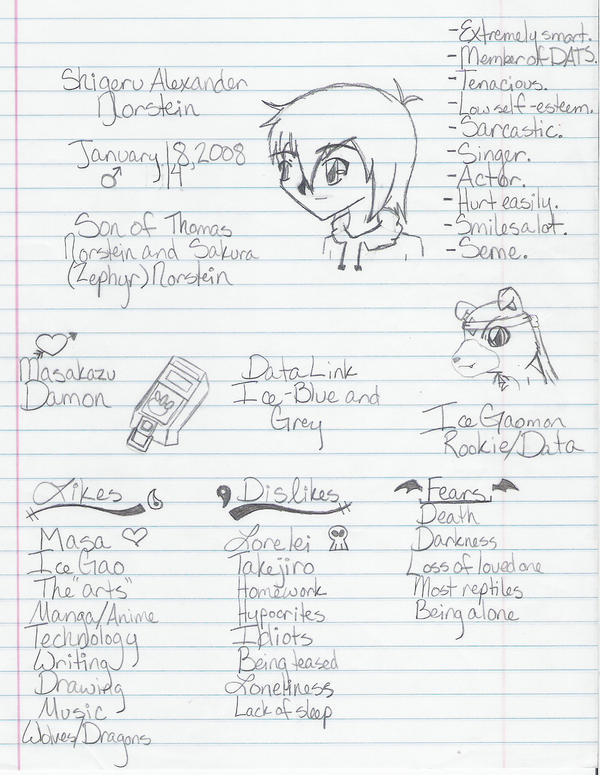 Shigeru Alexander
Norstein
January 18, 2008
♂ 14
Son of Thomas
Norstein and Sakura
(Zephyr) Norstein
-Extremely smart.
-Member of DATS.
-Tenacious.
-Low self-esteem.
-Sarcastic.
-Singer.
-Actor.
-Hurt easily.
-Smiles a lot.
-Seme.
Masakazu
Damon
Data Link
Ice-Blue and
Grey
Ice Gaomon
Rookie/Data
Likes
Masa ♡
Ice Gao
The "arts"
Manga/Anime
Technology
Writing
Drawing
Music
Wolves/Dragons
Dislikes
Lorelei
Takejiro
Homework
Hypocrites
Idiots
Being teased
Loneliness
Lack of sleep
Fears
Death
Darkness
Loss of loved one
Most reptiles
Being alone